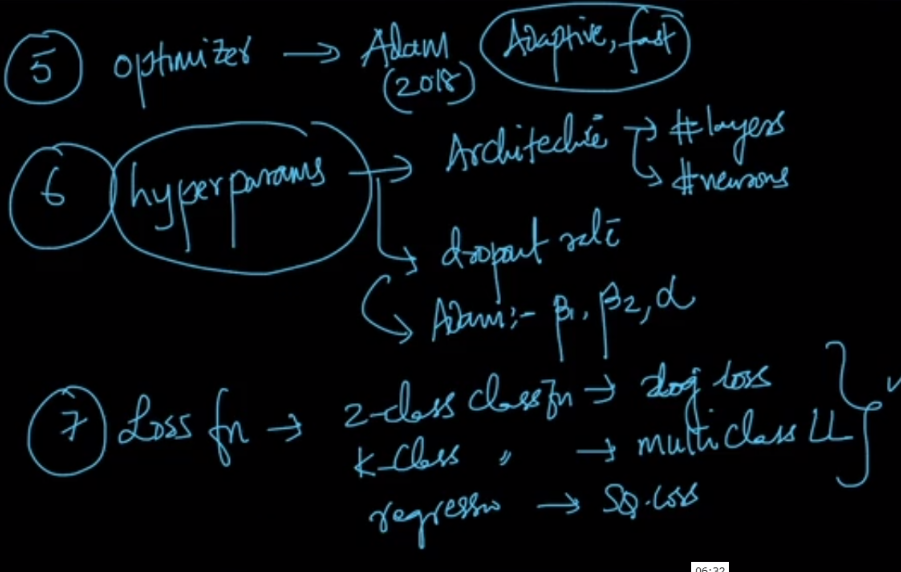 5 optimizer → Adam (Adaptive, fast)
(2018)
6 hyperparams → Architectue → #layers
→ #neurons
→ dropout rate
→ Adam:- β1, β2, α
7 Loss fn → 2-class classfn → log loss
K-Class " → multiclass LL
regressn → SQ.loss
06:32